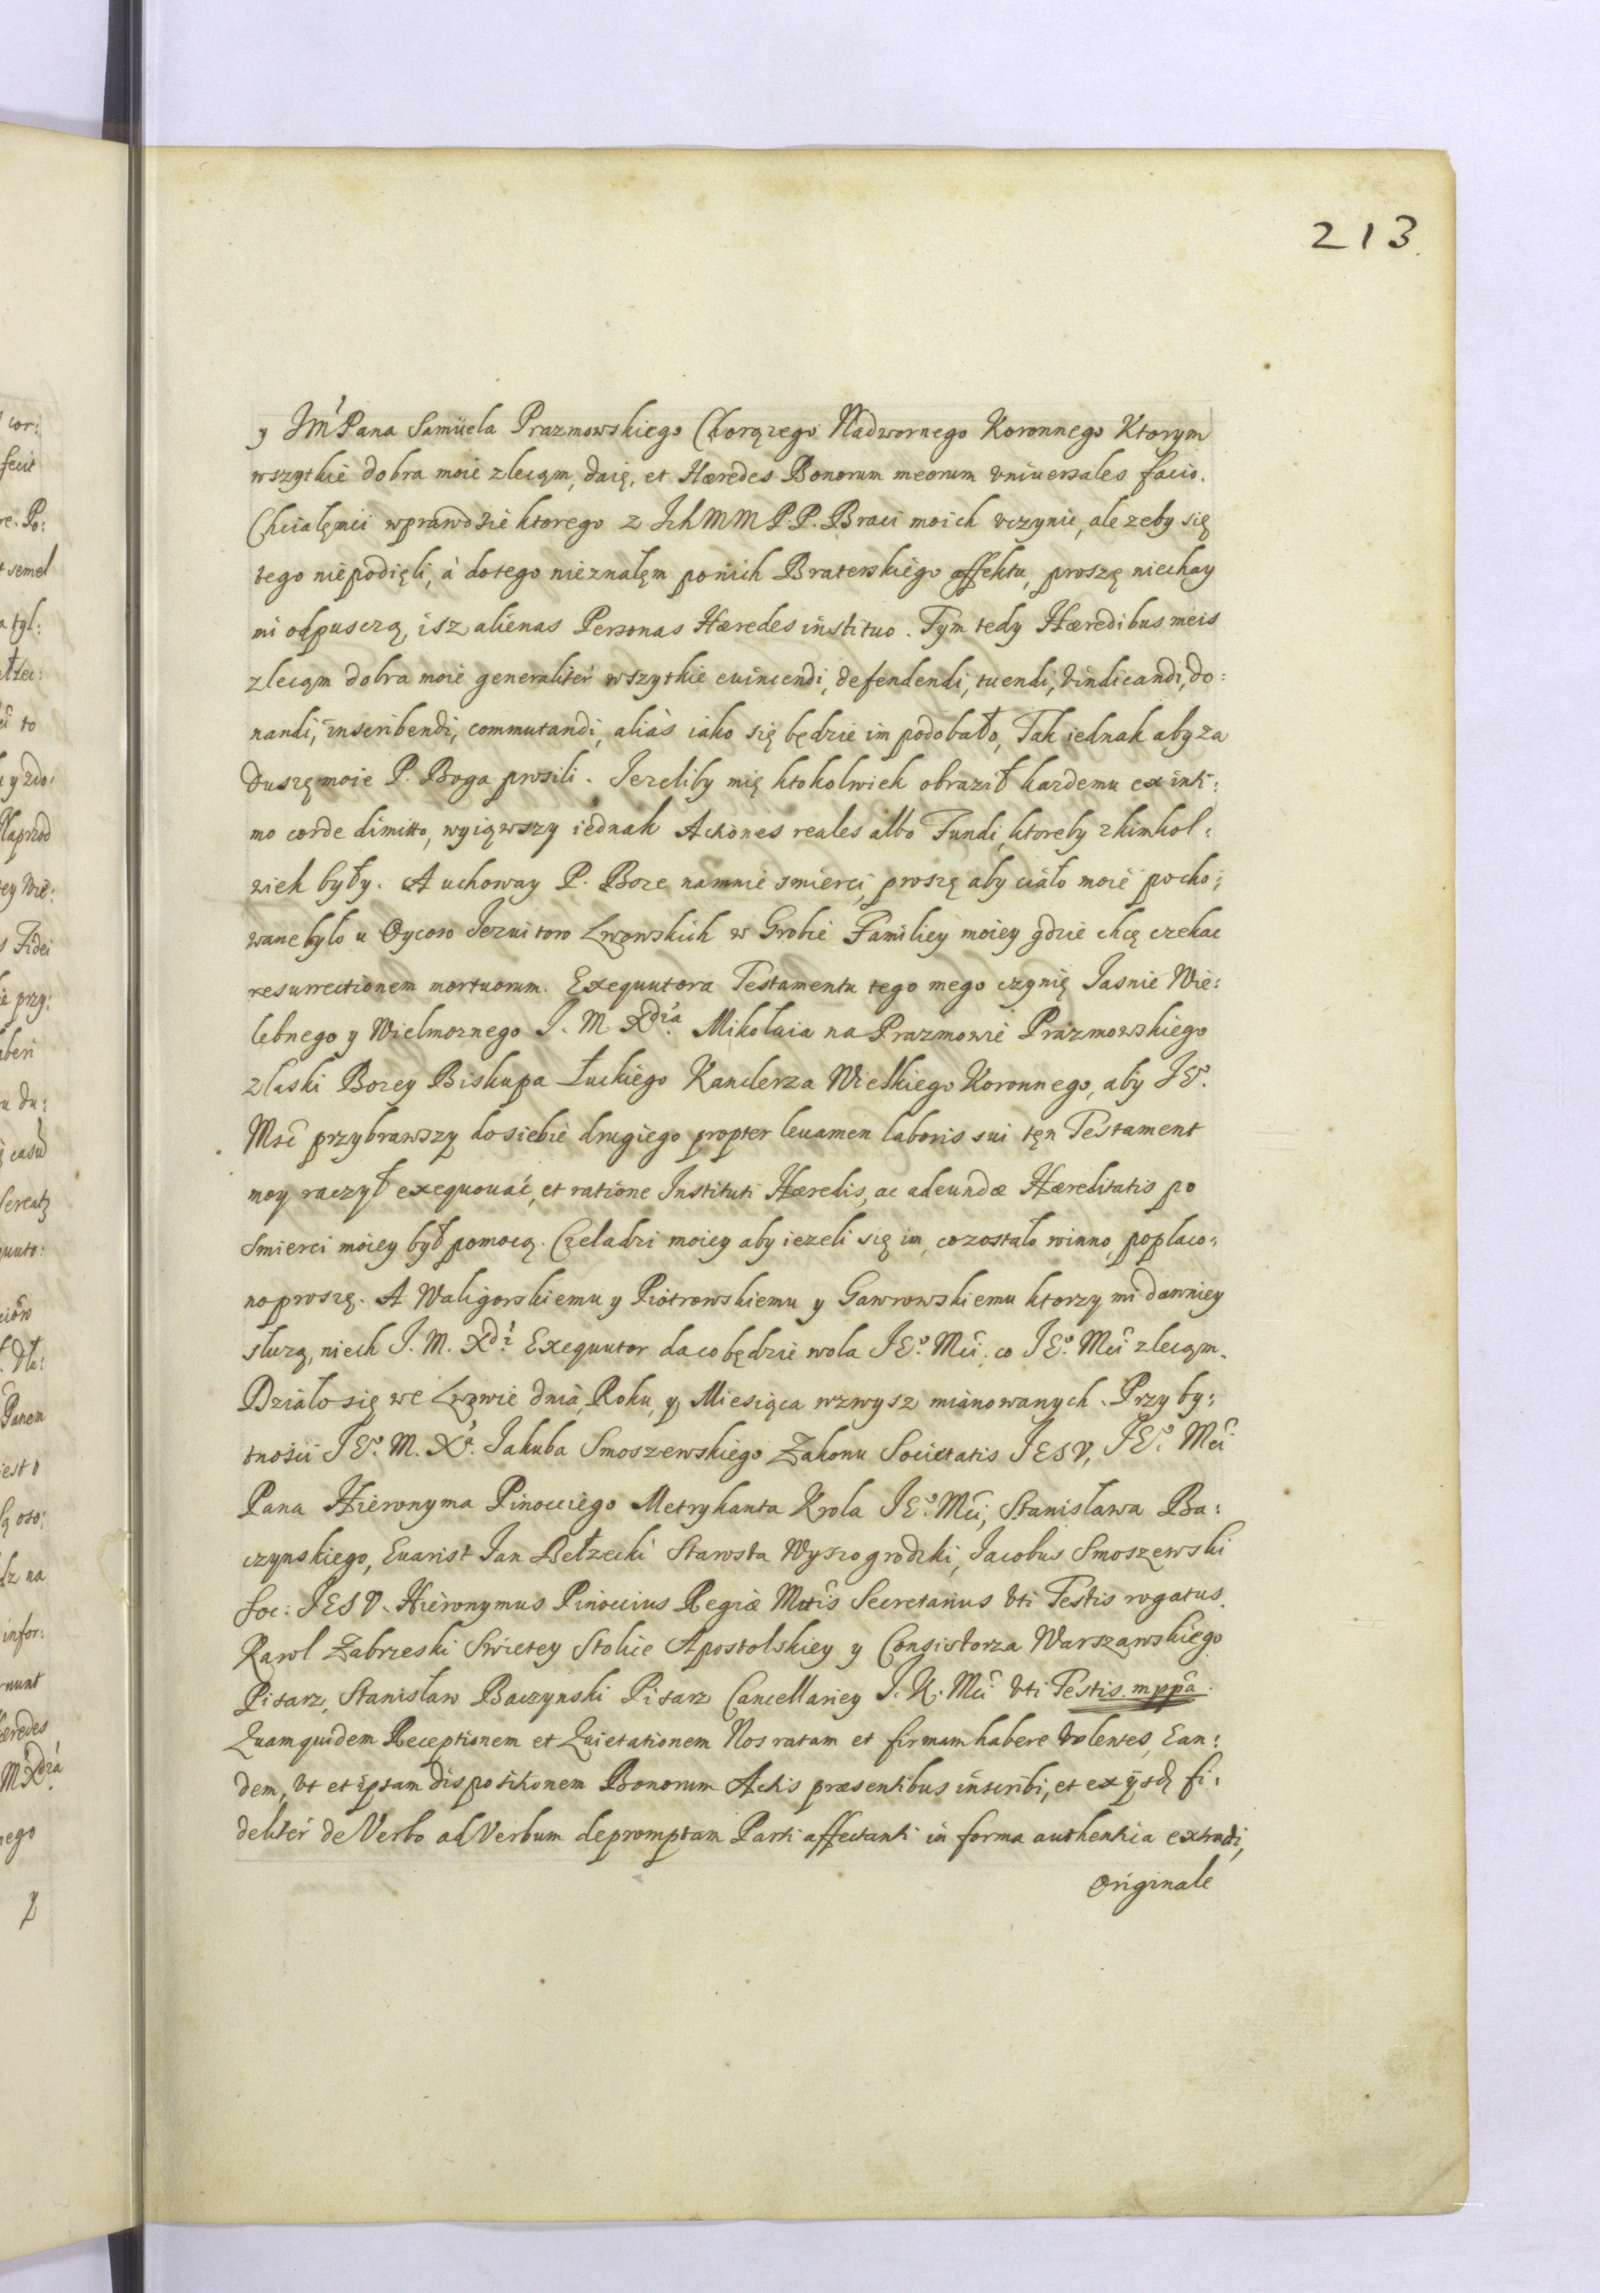 213.
y Jmć Pana Samuela Prazmowskiego Chorązego Nadwornego Koronnego Ktorym
wszytkie dobra moie zlecąm, daię, et Hæredes Bonorum meorum vniuersales facio.
Chciałęmci wprawdzie ktorego z IchMM PP. Braci moich vczynić, ale zeby się
tego niepodięli, à dotego nieznałęm ponich Braterskiego affektu, proszę niechay
mi odpusczą, isz alienas Personas Hæredes instituo. Tym tedy Hæredibus meis
zlecąm dobra moie generalitér wszytkie euincendi, defendendi, tuendi, vindicandi, do:
nandi, inscribendi, commutandi, aliàs iako się będzie im podobało, Tak iednak aby za
duszę moię P. Boga prosili. Iezeliby mię ktokolwiek obraził kazdemu ex inti:
mo corde dimitto, wyiąwszy iednak Actiones reales albo Fundi, ktoreby zkimkol:
wiek były. A uchoway P. Boze namnie smierci, proszę aby ciało moie pocho:
wane było u Oycow Iezuitow Lwowskich w Grobie Familiey moiey gdzie chcę czekac
resurrectionem mortuorum. Exequutora Testamentu tego mego czynię Iasnie Wie:
lebnego y Wielmoznego J. M. Xdza. Mikołaia na Prazmowie Prazmowskiego
złaski Bozey Biskupa Łuckiego Kanclerza Wielkiego Koronnego, aby JEo.
Mść przybrawszy dosiebie drugiego propter leuamen laboris sui tęn Testament
moy raczył exequować, et ratione Instituti Hæredis, ac adeundæ Hæreditatis po
smierci moiey był pomocą. Czeladzi moiey aby iezeli się im, cozostało winno, popłaco:
no proszę. A Waligorskiemu y Piotrowskiemu y Gawrowskiemu ktorzy mi dawniey
słuzą, niech J. M. Xdz Exequutor da co będzie wola JEo. Mci. co JEo. Mci zlecąm.
Działo się we Lwowie dnia, Roku, y Miesiąca wzwysz mianowanych. Przy by:
tności JEo. M. Xa. Iakuba Smoszewskiego Zakonu Societatis JESV, JEo. Mci
Pana Hieronyma Pinocciego Metrykanta Krola JEo. Mci, Stanisława Ba:
czynskiego, Euarist Ian Bełzecki Starosta Wyszogrodzki, Iacobus Smoszewski
Soc: JESV. Hieronymus Pinoccius Regiæ Mttis Secretarius vti Testis rogatus.
Karol Zabrzeski Swietey Stolice Apostolskiey y Consistorza Warszawskiego
Pisarz, Stanisław Baczynski Pisarz Cancellariey J. K. Mci vti Testis. mppa.
Quam quidem Receptionem et Quietationem Nos ratam et firmam habere volentes, Ean:
dem, vt et ipsam dispositionem Bonorum Actis præsentibus inscribi, et ex ijsdę fi:
delitér de Verbo ad Verbum depromptam Parti affectanti in forma authentica extradi,
originale